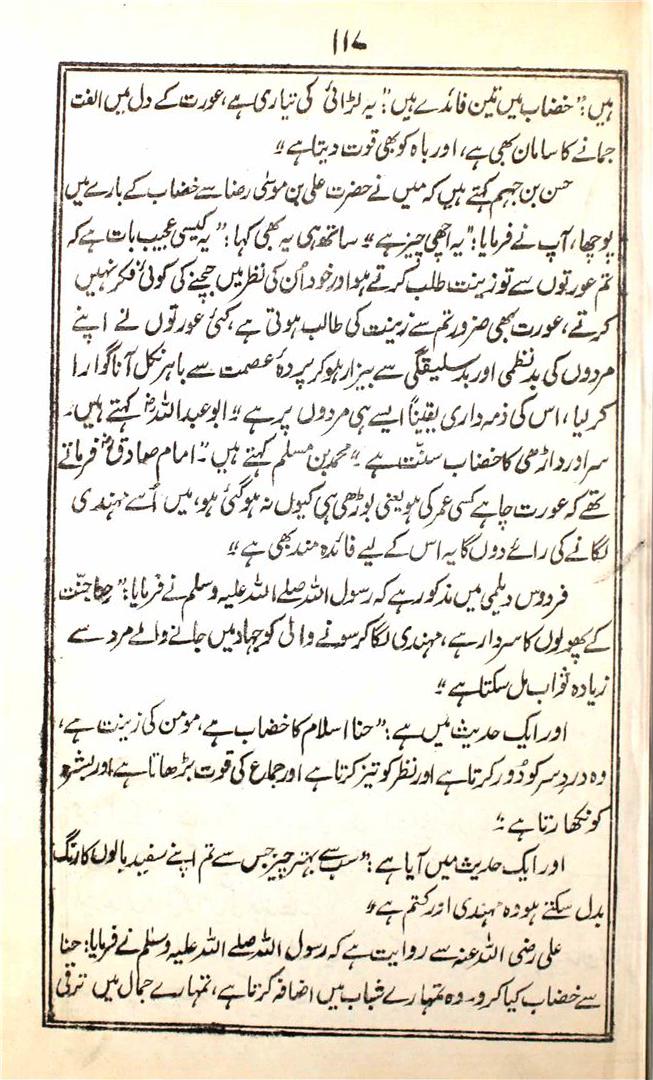 ۱۱۷
ہیں: "خضاب میں تین فائدے ہیں: "یہ لڑائی کی تیاری ہے، عورت کے دل میں الفت
جمانے کا سامان بھی ہے، اور باہ کو بھی قوت دیتا ہے"
حسن بن جہم کہتے ہیں کہ میں نے حضرت علی بن موسیٰ رضا سے خضاب کے بارے میں
پوچھا، آپ نے فرمایا: "یہ اچھی چیز ہے" ساتھ ہی یہ بھی کہا: "یہ کیسی عجیب بات ہے کہ
تم عورتوں سے تو زینت طلب کرتے ہو اور خود اُن کی نظر میں جچنے کی کوئی فکر نہیں
کرتے، عورت بھی ضرور تم سے زینت کی طالب ہوتی ہے، کئی عورتوں نے اپنے
مردوں کی بد نظمی اور بد سلیقگی سے بیزار ہو کر پردۂ عصمت سے باہر نکل آنا گوارا
کر لیا، اس کی ذمہ داری یقیناً ایسے ہی مردوں پر ہے" ابو عبداللہؓ کہتے ہیں۔
سر اور داڑھی کا خضاب سنّت ہے" محمد بن مسلم کہتے ہیں: "امام صادقؓ فرماتے
تھے کہ عورت چاہے کسی عمر کی ہو یعنی بوڑھی ہی کیوں نہ ہو گئی ہو، میں اُسے مہندی
لگانے کی رائے دوں گا یہ اس کے لیے فائدہ مند بھی ہے"
فردوس دیلمی میں مذکور ہے کہ رسول اللہ صلے اللہ علیہ وسلم نے فرمایا: "حنا جنّت
کے پھولوں کا سردار ہے، مہندی لگا کر سونے والی کو جہاد میں جانے والے مرد سے
زیادہ ثواب مل سکتا ہے"
اور ایک حدیث میں ہے: "حنا اسلام کا خضاب ہے، مومن کی زینت ہے،
وہ دردِ سر کو دُور کرتا ہے اور نظر کو تیز کرتا ہے اور جماع کی قوت بڑھاتا ہے اور بشرہ
کو نکھارتا ہے"
اور ایک حدیث میں آیا ہے: "سب سے بہتر چیز جس سے تم اپنے سفید بالوں کا رنگ
بدل سکتے ہو وہ مہندی اور کتم ہے"
علی رضی اللہ عنہ سے روایت ہے کہ رسول اللہ صلے اللہ علیہ وسلم نے فرمایا: حنا
سے خضاب کیا کرو۔ وہ تمہارے شباب میں اضافہ کرتا ہے، تمہارے جمال میں ترقی